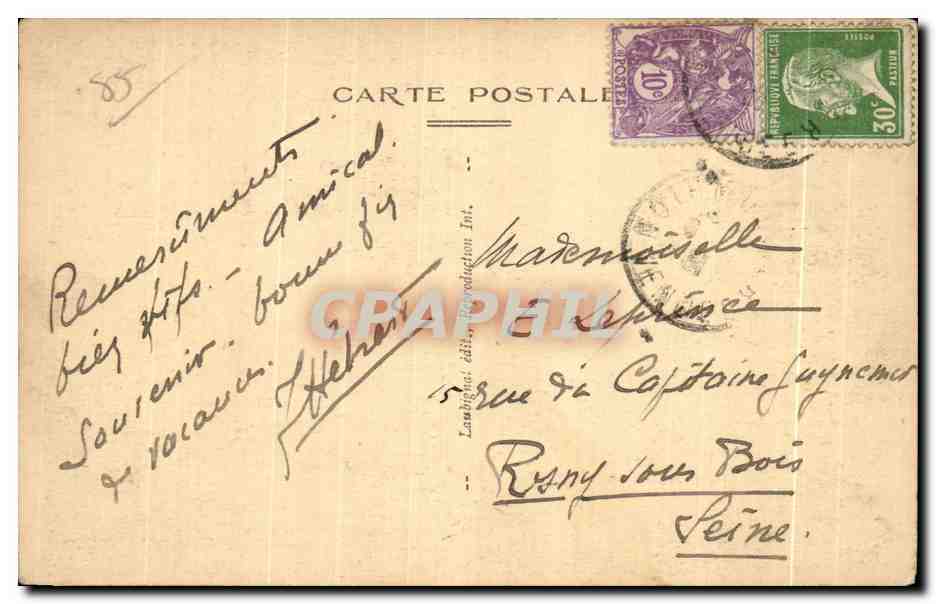 85
CARTE POSTALE
10c
POSTES
RÉPUBLIQUE FRANÇAISE
POSTES
PASTEUR
30c
Remerciments
bien vifs. - Amical
Souvenir. bonne fin
de vacances.
Laubignat édit., Reproduction Int.
Mademoiselle
Leprince
5 rue du Capitaine Guynemer
Rosny sous Bois
Seine.
CPAPHIL